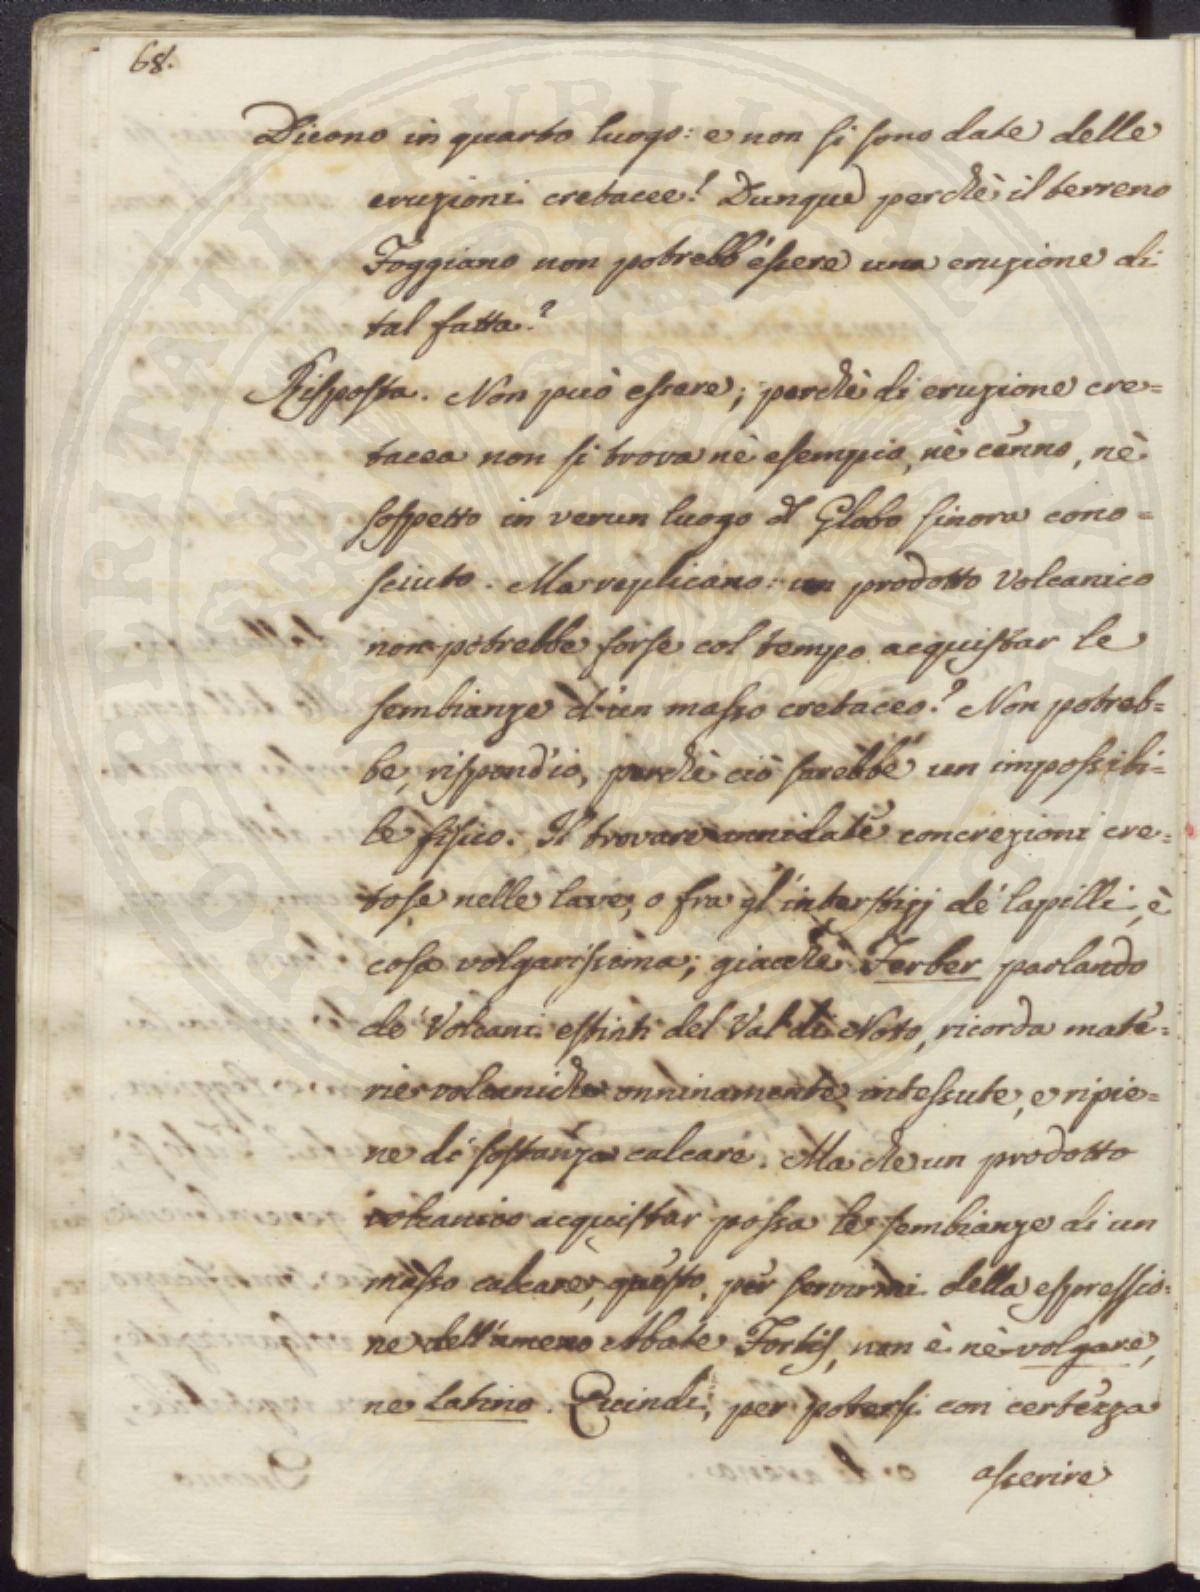 68.
Dicono in quarto luogo: e non si sono date delle
eruzioni cretacee! Dunque perchè il terreno
Foggiano non potrebb'essere una eruzione di
tal fatta?
Risposta. Non può essere; perchè di eruzione cre=
tacea non si trova nè esempio, nè cenno, nè
sospetto in verun luogo del Globo sinora cono=
sciuto. Ma replicano: un prodotto Volcanico
non potrebbe forse col tempo acquistar le
sembianze d'un masso cretaceo? Non potreb=
be, rispond'io, perchè ciò sarebbe un impossibi=
le fisico. Il trovare annidate concrezioni cre=
tose nelle lave, o fra gl'interstizj de' lapilli, è
cosa volgarissima; giacchè Ferber parlando
de' Volcani estinti del Val di Noto, ricorda mate=
rie volcaniche onninamente intessute, e ripie=
ne di sostanza calcare. Ma che un prodotto
volcanico acquistar possa le sembianze di un
masso calcare, questo, per servirmi della espressio=
ne dell'ameno Abate Fortis, non è nè volgare,
ne latino. Quindi, per potersi con certezza
asserire